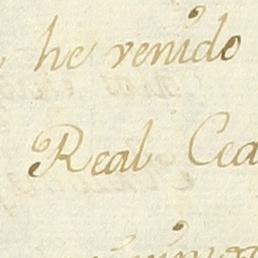 he venido
Real Ced